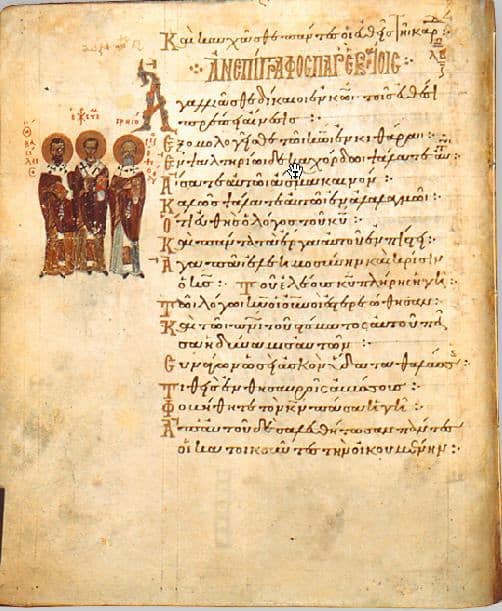 Καὶ καυχᾶσθε πάντες οἱ εὐθεῖς τῇ καρδ
ΑΝΕΠΙΓΡΑΦΟΣ ΠΑΡ ΕΒΡΑΙΟΙΣ
Ἀγαλλιᾶσθε δίκαιοι ἐν κω τοῖς εὐθέσι
πρέπει αἴνεσις :
Ἐξομολογεῖσθε τῶ κω ἐν κιθάρα :
Ἐν ψαλτηρίω δεκαχόρδω ψάλατε αὐτῶ
Ἄσατε αὐτῶ ἆσμα καινόν :
Καλῶς ψάλατε αὐτῶ ἐν ἀλαλαγμῶ :
Ὅτι εὐθὴς ὁ λόγος τοῦ κυ :
Καὶ πάντα τὰ ἔργα αὐτοῦ ἐν πίστει :
Ἀγαπᾶ ἐλεημοσύνην καὶ κρίσιν
ὁ κς : τοῦ ἐλέους κυ πλήρης ἡ γῆ :
Τῶ λόγω κυ οἱ οὐνοὶ ἐστερεώθησαν :
Καὶ τῶ πνι τοῦ στόματος αὐτοῦ πᾶ
σα ἡ δύναμις αὐτῶν :
Συνάγων ὡσεὶ ἀσκὸν ὕδατα θαλάσσης
Τιθεὶς ἐν θησαυροῖς ἀβύσσους :
Φοβηθήτω τὸν κν πᾶσα ἡ γῆ :
Ἀπ αὐτοῦ δὲ σαλευθήτωσαν πάντες
οἱ κατοικοῦντες τὴν οἰκουμένην :